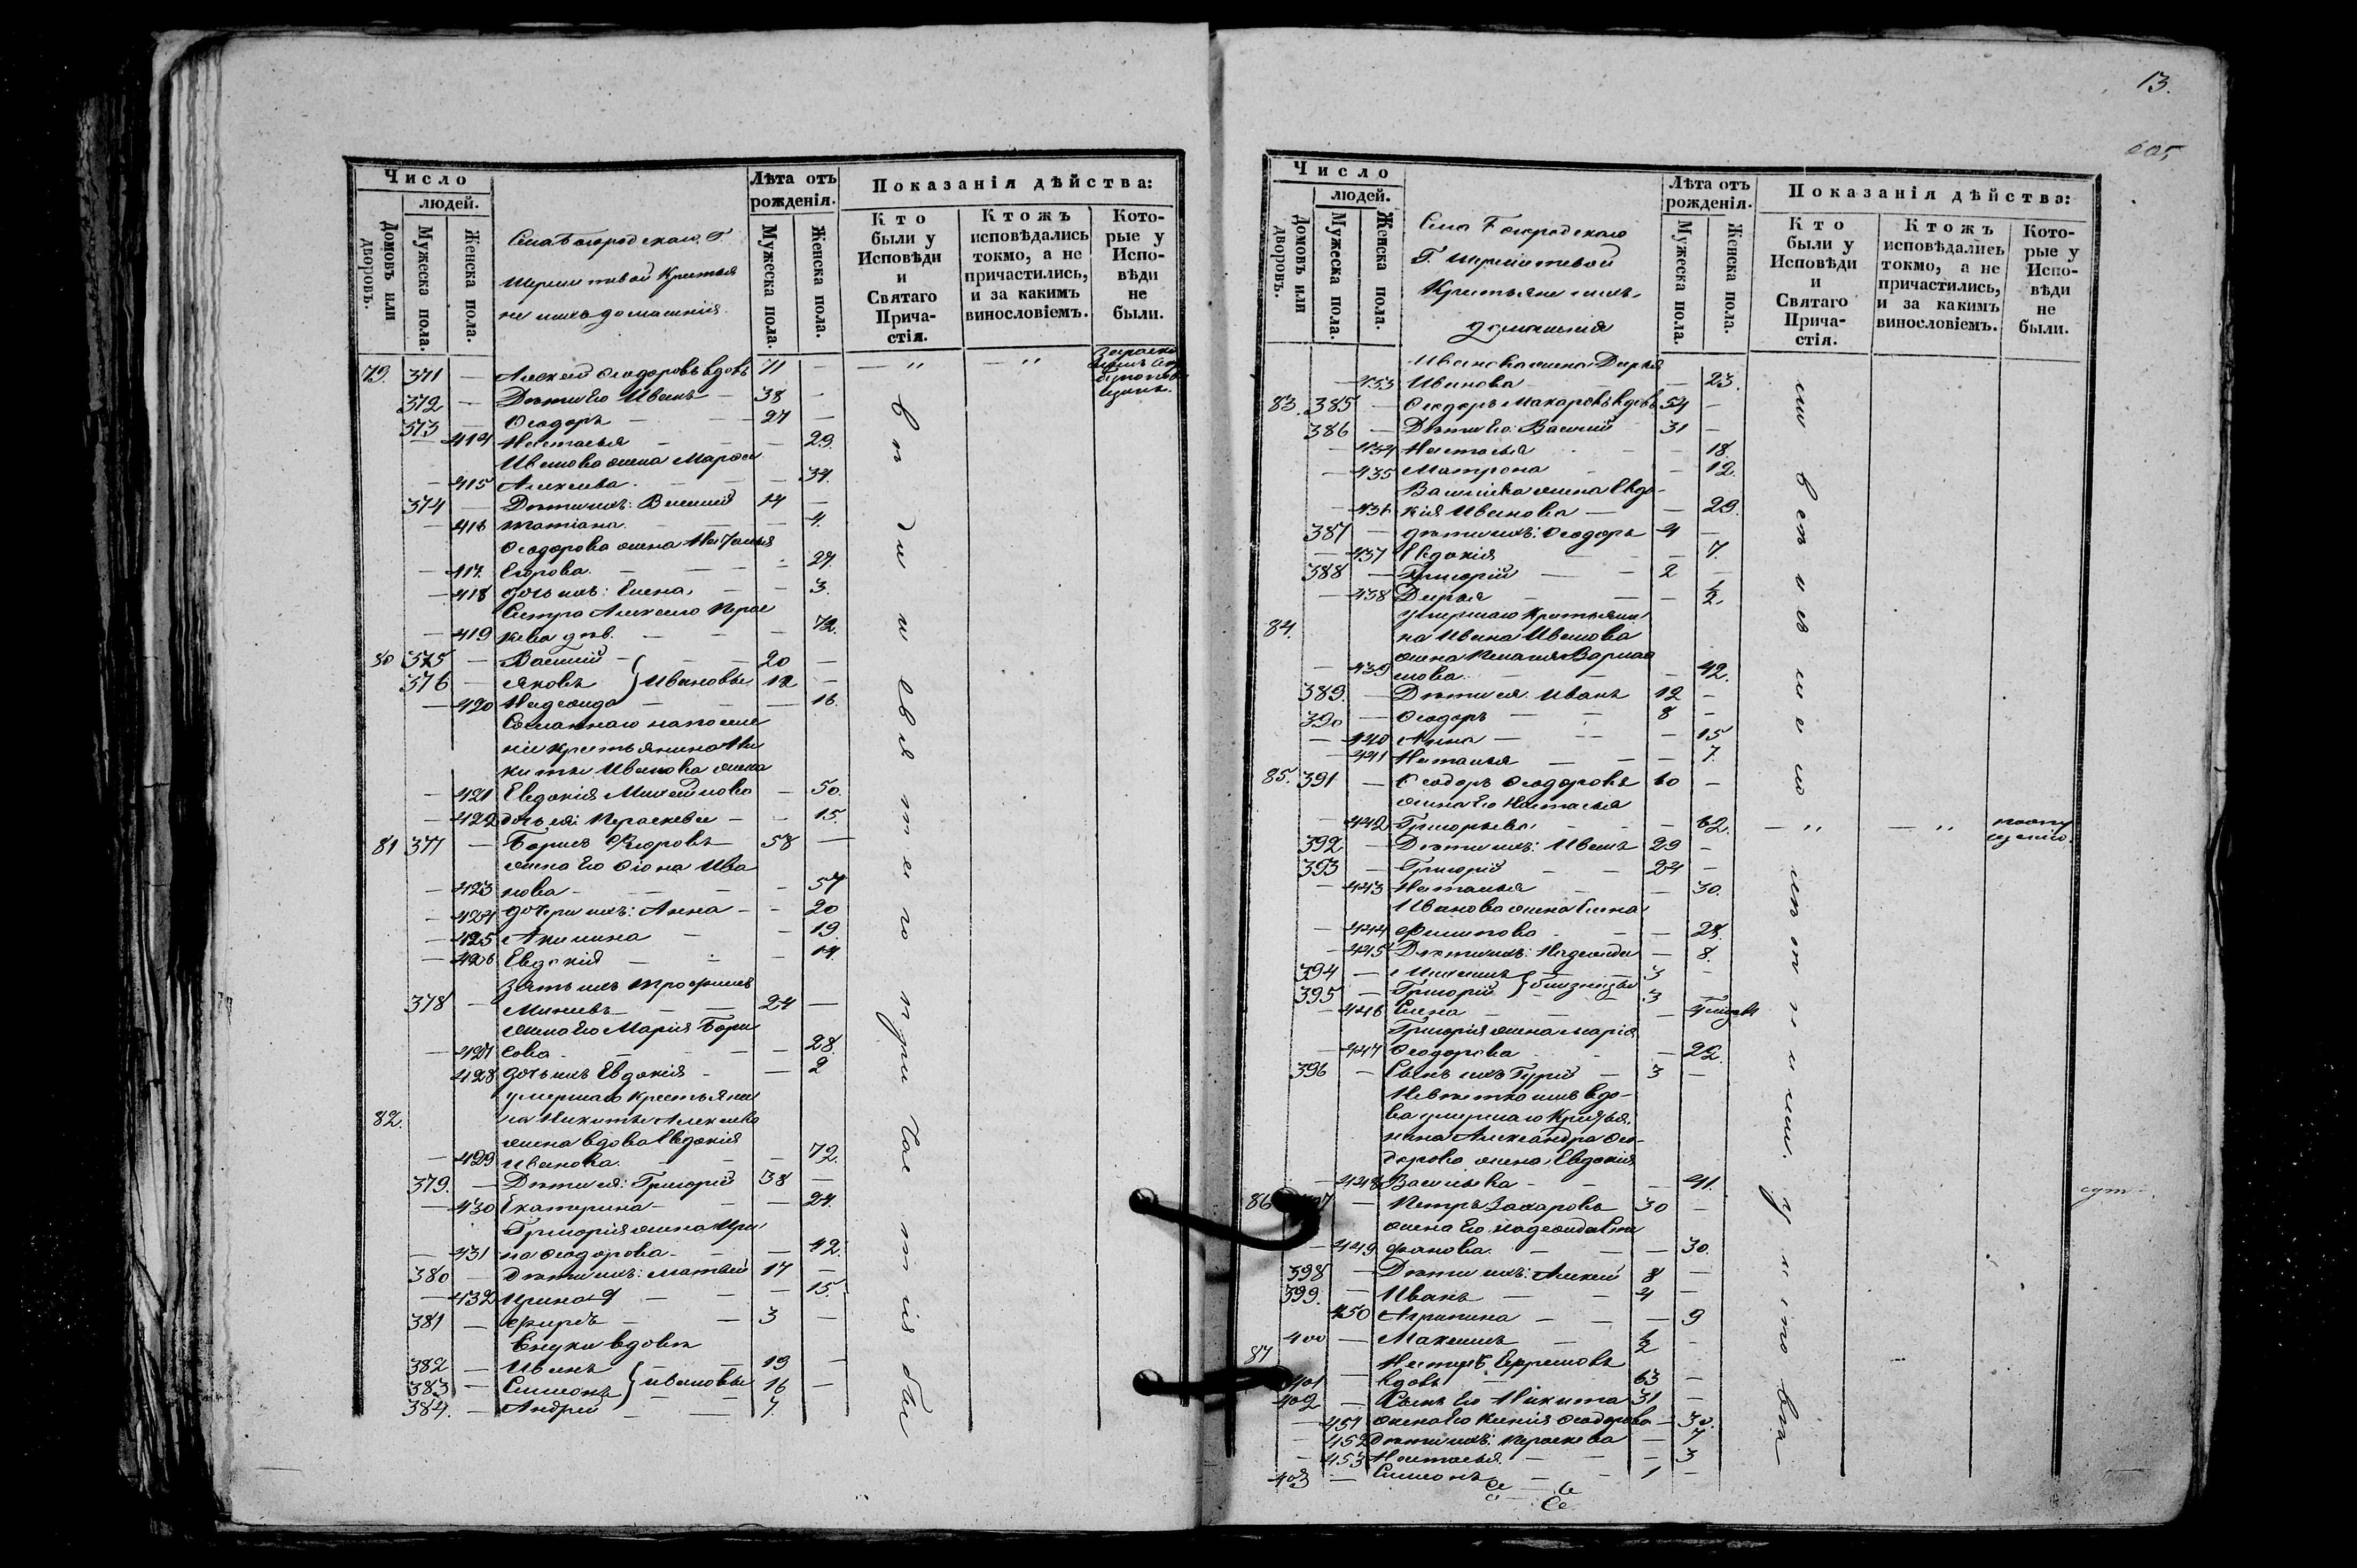 Число
людей.
Домовъ или дворовъ.
Мужеска пола.
Женска пола.
Села Богородскаго Г.
Шереметевой Крестья
не ихъ домашнія.
Лѣта отъ рожденія.
Мужеска пола.
Женска пола.
Показанія дѣйства:
Кто были у Исповѣди и Святаго Прича-стія.
Ктожъ исповѣдались токмо, а не причастились, и за какимъ винословіемъ.
Кото-рые у Испо-вѣди не были.
79. 371 — Алексей Ѳеодоровъ вдовъ 71 —
372 — Дѣти Его Иванъ — 38 —
373 — Ѳеодоръ — 27 —
— 414 Настасья — 29.
Иванова жена Марѳа
— 415 Алексеева. — 34.
374 — Дѣти ихъ: Василій 14 —
— 416 Татіана. — 4.
Ѳеодорова жена Наталья
— 417. Егорова. — 27.
— 418 дочь ихъ: Елена, — 3.
Сестра Алексея Парас
— 419 кева дѣв. — 72.
80 375 — Василій — 20 —
376 — Яковъ } Ивановы 12 —
— 420 Надежда — 16.
Сосланнаго на поселе
ніе крестьянина Ни
киты Иванова жена
— 421 Евдокія Михейлова — 50.
— 422 дочь ея: Параскева — 15.
81 377 — Борисъ Егоровъ 58 —
жена Его Ѳіона Ива
— 423 нова — 57
— 424 дочери ихъ: Анна — 20
— 425 Акилина — 19.
— 426 Евдокія — 14.
Зять ихъ Трофимъ
378 — Минеевъ — 24 —
жена Его Марія Бори
— 427 сова — 28.
428 дочь ихъ Евдокія — 2
82. умершаго крестьяни
на Никиты Алексеева
жена вдова Евдокія
— 429 Иванова. — 72.
379. — Дѣти ея: Григорій 38 —
— 430 Екатерина — 24.
Григорія жена Ири
— 431 на Ѳеодорова — 42.
380 — Дѣти ихъ: Матвей 17 —
— 432 Ирина — 15.
381 — 3 —
Внуки вдовы
382 — Иванъ 19 —
383 — Симеонъ } Ивановы 16 —
384. — Андрей — 7.
вѣди и Святаго причастія бы
13.
605
Число
людей.
Домовъ или дворовъ.
Мужеска пола.
Женска пола.
Села Богородскаго
Г. Шереметевой
Крестьяне ихъ
домашнія
Лѣта отъ рожденія.
Мужеска пола.
Женска пола.
Показанія дѣйства:
Кто были у Исповѣди и Святаго Прича-стія.
Ктожъ исповѣдались токмо, а не причастились, и за какимъ винословіемъ.
Кото-рые у Испо-вѣди не были.
Иванова жена Дарья
— 433 Иванова — 23.
83. 385 — Ѳеодоръ Макаровъ вдовъ 54 —
386 — Дѣти Его: Василій 31 —
— 434 Настасья — 18.
— 435 Матрона — 12.
Василіева жена Евдо-
— 436 кія Иванова — 29.
387 — дѣти ихъ: Ѳеодоръ 4 —
— 437 Евдокія — 7.
388 — Григорій — 2 —
— 438 Дарья — ½.
84. умершаго Крестьяни
на Ивана Иванова
жена Пелагея Варлаа
— 439 мова. — 42.
389. — Дѣти ея: Иванъ 12 —
390 — Ѳеодоръ — 8 —
— 440 Анна — 15
— 441 Наталья — 7.
85. 391 — Ѳеодоръ Ѳеодоровъ 60 —
жена Его Настасья
— 442 Григорьева — 62.
392 — Дѣти ихъ: Иванъ 29 —
393 — Григорій — 24 —
— 443 Наталья — 30.
Иванова жена Елена
— 444 Филипова — 28.
— 445 Дѣти ихъ: Надежда — 8.
394 — Михаилъ — 3 —
395 — Григорій } близнецы 3
— 446 Елена —
Григорія жена Марія
— 447 Ѳеодорова — 22.
396 — Сынъ ихъ Гурій — 3 —
Невѣстка ихъ вдо-
ва умершаго Крестья-
нина Александра Ѳео-
дорова жена Евдокія
— 448 Васильева — 41.
86 397 — Петръ Захаровъ 30 —
жена Его Надежда Сте
— 449 фанова. — 30.
398 — Дѣти ихъ: Алексей 8 —
399. — Иванъ — 4 —
450 Агрипина — 9
400 — Максимъ ½ —
87 Несторъ Ефремовъ
401 — вдовъ 63 —
402 — Сынъ Его Никита 31 —
— 451 жена Его Ксенія Ѳеодорова — 30.
— 452 Дѣти ихъ: Параскева — 7
— 453 Настасья — 3
403 — Симеонъ — 1 —